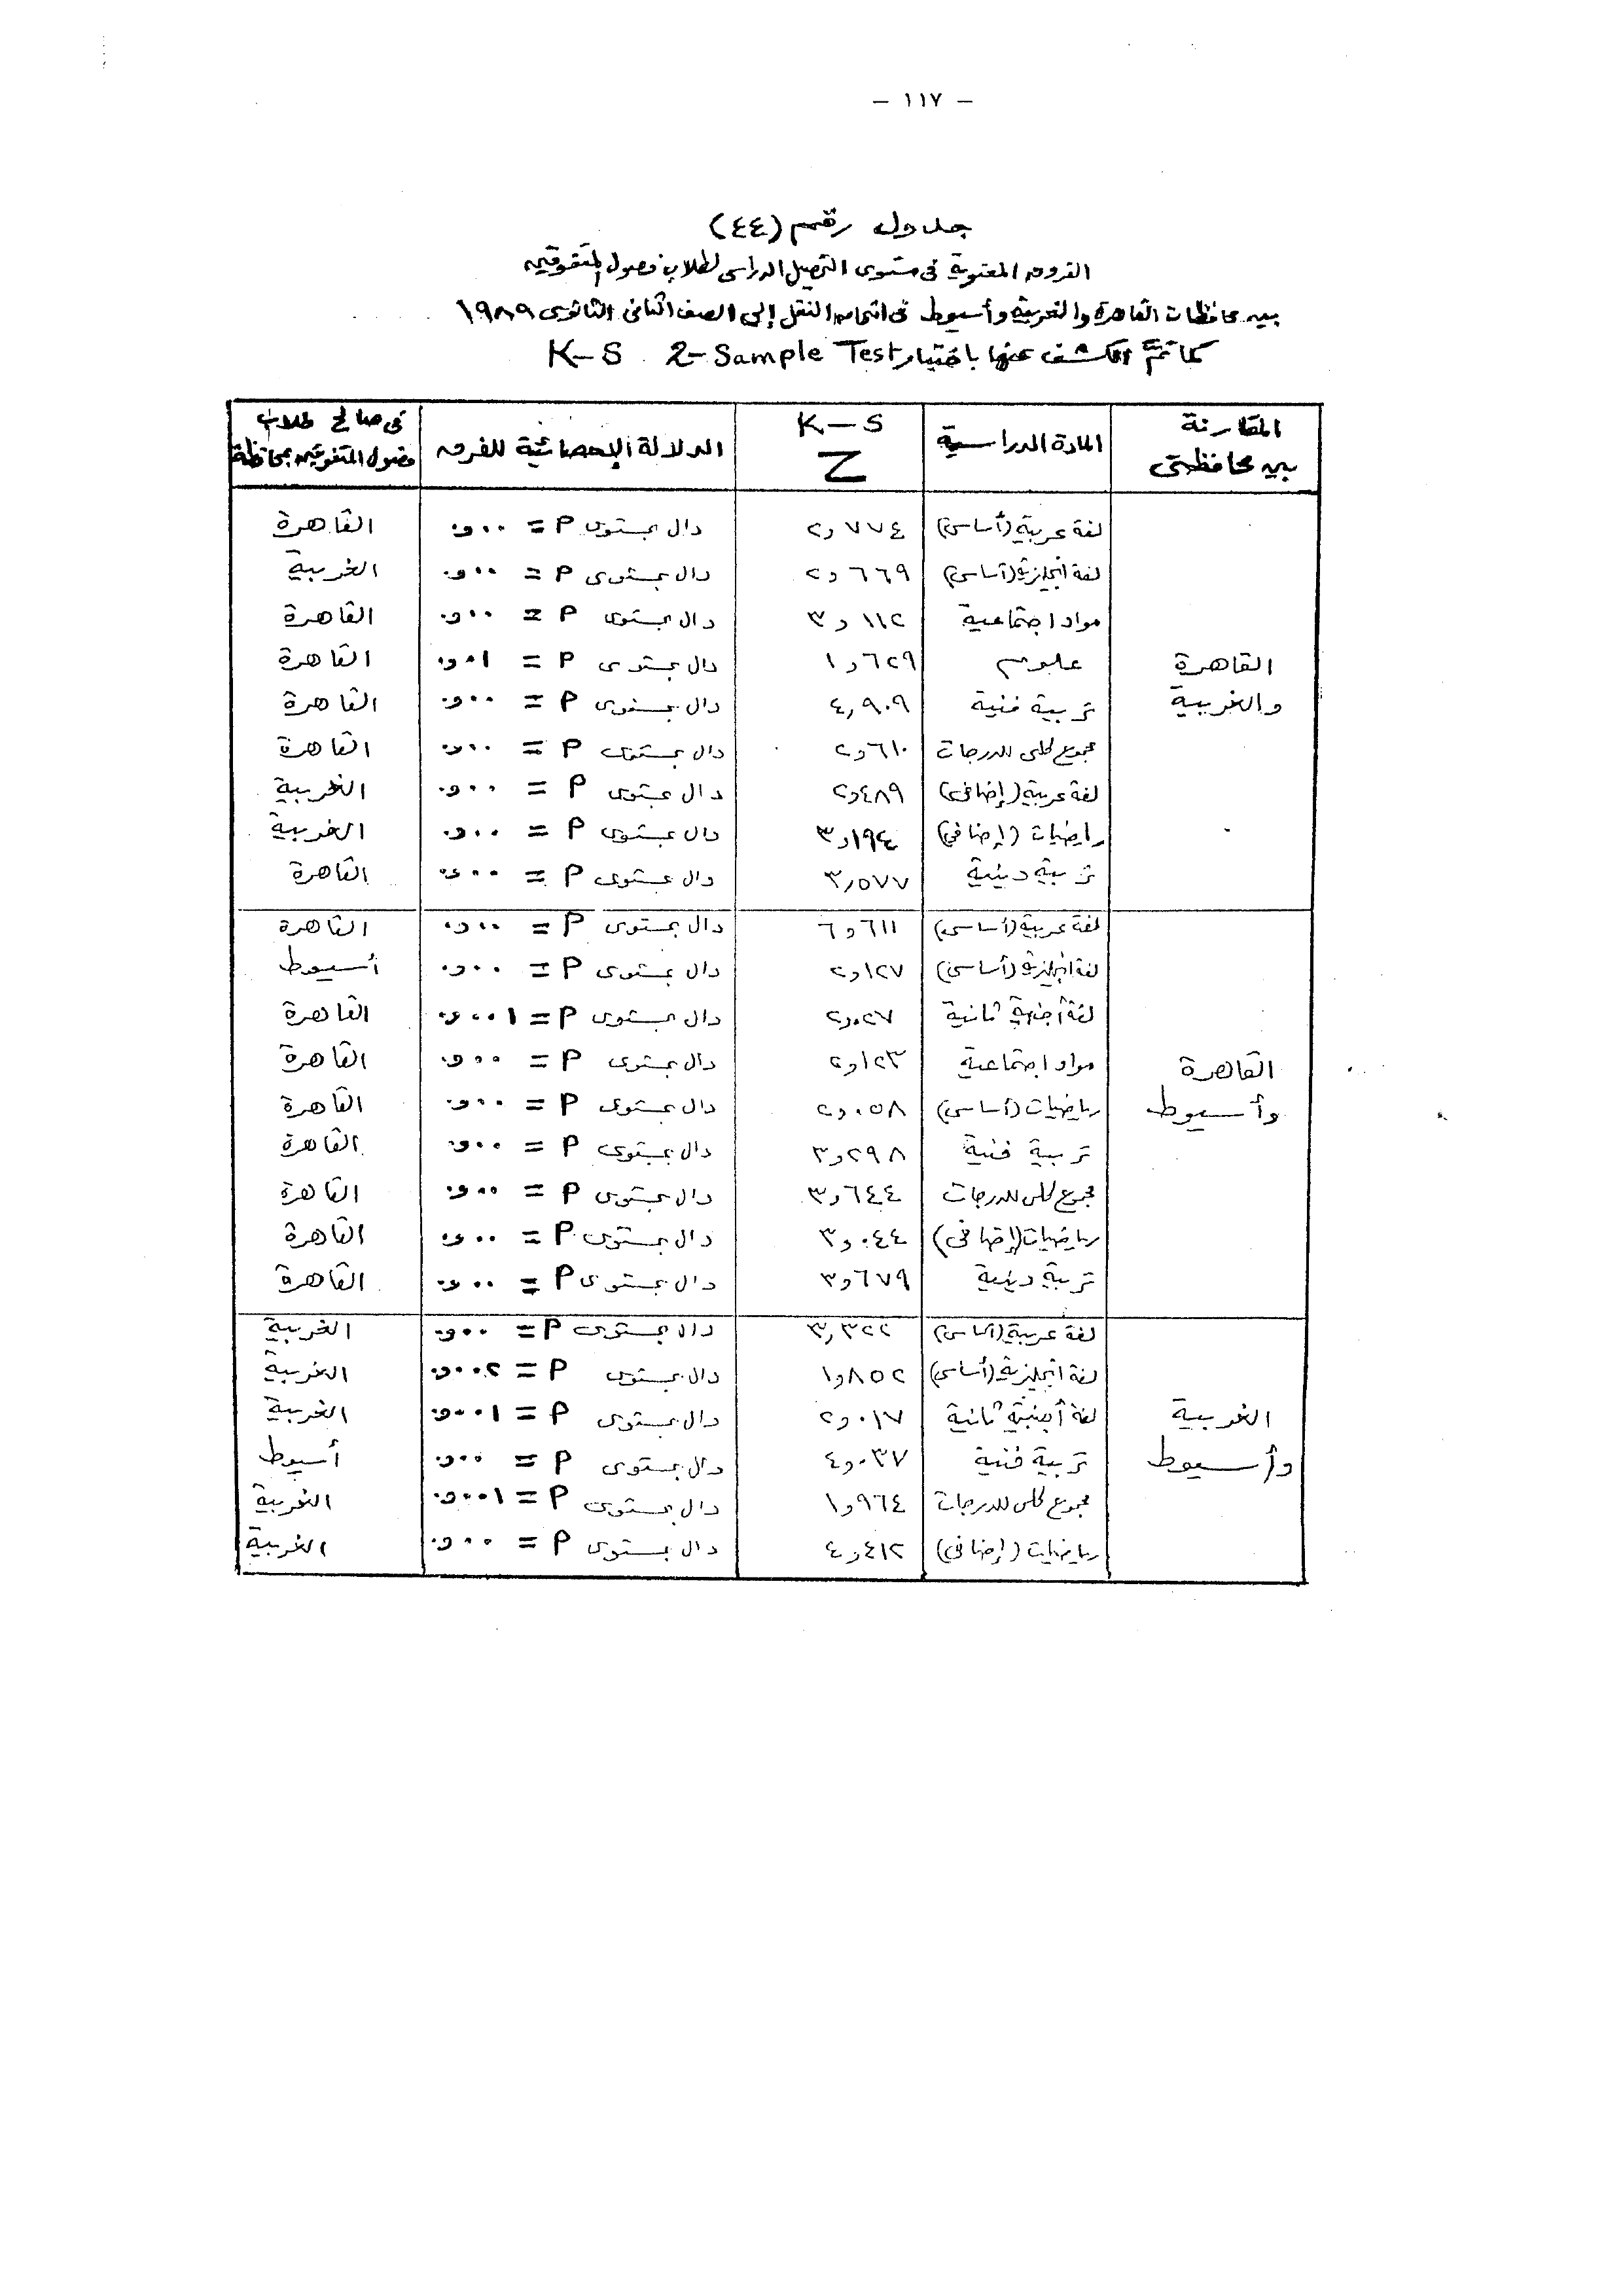 - ١١٧ -
جدول رقم (٤٤)
الفروق المعنوية فى مستوى التحصيل الدراسى لطلاب فصول المتفوقين
بين محافظات القاهرة والغربية وأسيوط فى امتحان النقل إلى الصف الثانى الثانوى ١٩٨٩
كما تمَّ الكشف عنها باختبار K-S 2-Sample Test
المقارنة بين محافظتى | المادة الدراسية | K-S Z | الدلالة الإحصائية للفرق | فى صالح طلاب فصول المتفوقين بمحافظة
القاهرة والغربية
لغة عربية (أساسى) | ٢٫٧٧٤ | دال بمستوى P = ٠٠و٠ | القاهرة
لغة انجليزية (أساسى) | ٦٦٩و٢ | دال بمستوى P = ٠٠و٠ | الغربية
مواد اجتماعية | ١١٢و٣ | دال بمستوى P = ٠٠و٠ | القاهرة
علوم | ٦٢٩و١ | دال بمستوى P = ٠١و٠ | القاهرة
تربية فنية | ٤٫٩٠٩ | دال بمستوى P = ٠٠و٠ | القاهرة
مجموع كلى للدرجات | ٦١٠و٢ | دال بمستوى P = ٠٠و٠ | القاهرة
لغة عربية (إضافى) | ٤٨٩و٢ | دال بمستوى P = ٠٠و٠ | الغربية
رياضيات (إضافى) | ١٩٤و٣ | دال بمستوى P = ٠٠و٠ | الغربية
تربية دينية | ٣٫٥٧٧ | دال بمستوى P = ٠٠و٠ | القاهرة
القاهرة وأسيوط
لغة عربية (أساسى) | ٦١١و٦ | دال بمستوى P = ٠٠و٠ | القاهرة
لغة انجليزية (أساسى) | ١٢٧و٢ | دال بمستوى P = ٠٠و٠ | أسيوط
لغة أجنبية ثانية | ٠٢٧و٢ | دال بمستوى P = ٠٠١و٠ | القاهرة
مواد اجتماعية | ١٢٣و٢ | دال بمستوى P = ٠٠و٠ | القاهرة
رياضيات (أساسى) | ٠٥٨و٢ | دال بمستوى P = ٠٠و٠ | القاهرة
تربية فنية | ٢٩٨و٣ | دال بمستوى P = ٠٠و٠ | القاهرة
مجموع كلى للدرجات | ٦٤٤و٣ | دال بمستوى P = ٠٠و٠ | القاهرة
رياضيات (إضافى) | ٠٤٤و٣ | دال بمستوى P = ٠٠و٠ | القاهرة
تربية دينية | ٦٧٩و٣ | دال بمستوى P = ٠٠و٠ | القاهرة
الغربية وأسيوط
لغة عربية (أساسى) | ٣٫٣٢٢ | دال بمستوى P = ٠٠و٠ | الغربية
لغة انجليزية (أساسى) | ٨٥٢و١ | دال بمستوى P = ٠٠٢و٠ | الغربية
لغة أجنبية ثانية | ٠١٧و٢ | دال بمستوى P = ٠٠١و٠ | الغربية
تربية فنية | ٠٣٧و٤ | دال بمستوى P = ٠٠و٠ | أسيوط
مجموع كلى للدرجات | ٩٦٤و١ | دال بمستوى P = ٠٠١و٠ | الغربية
رياضيات (إضافى) | ٤١٢و٤ | دال بمستوى P = ٠٠و٠ | الغربية